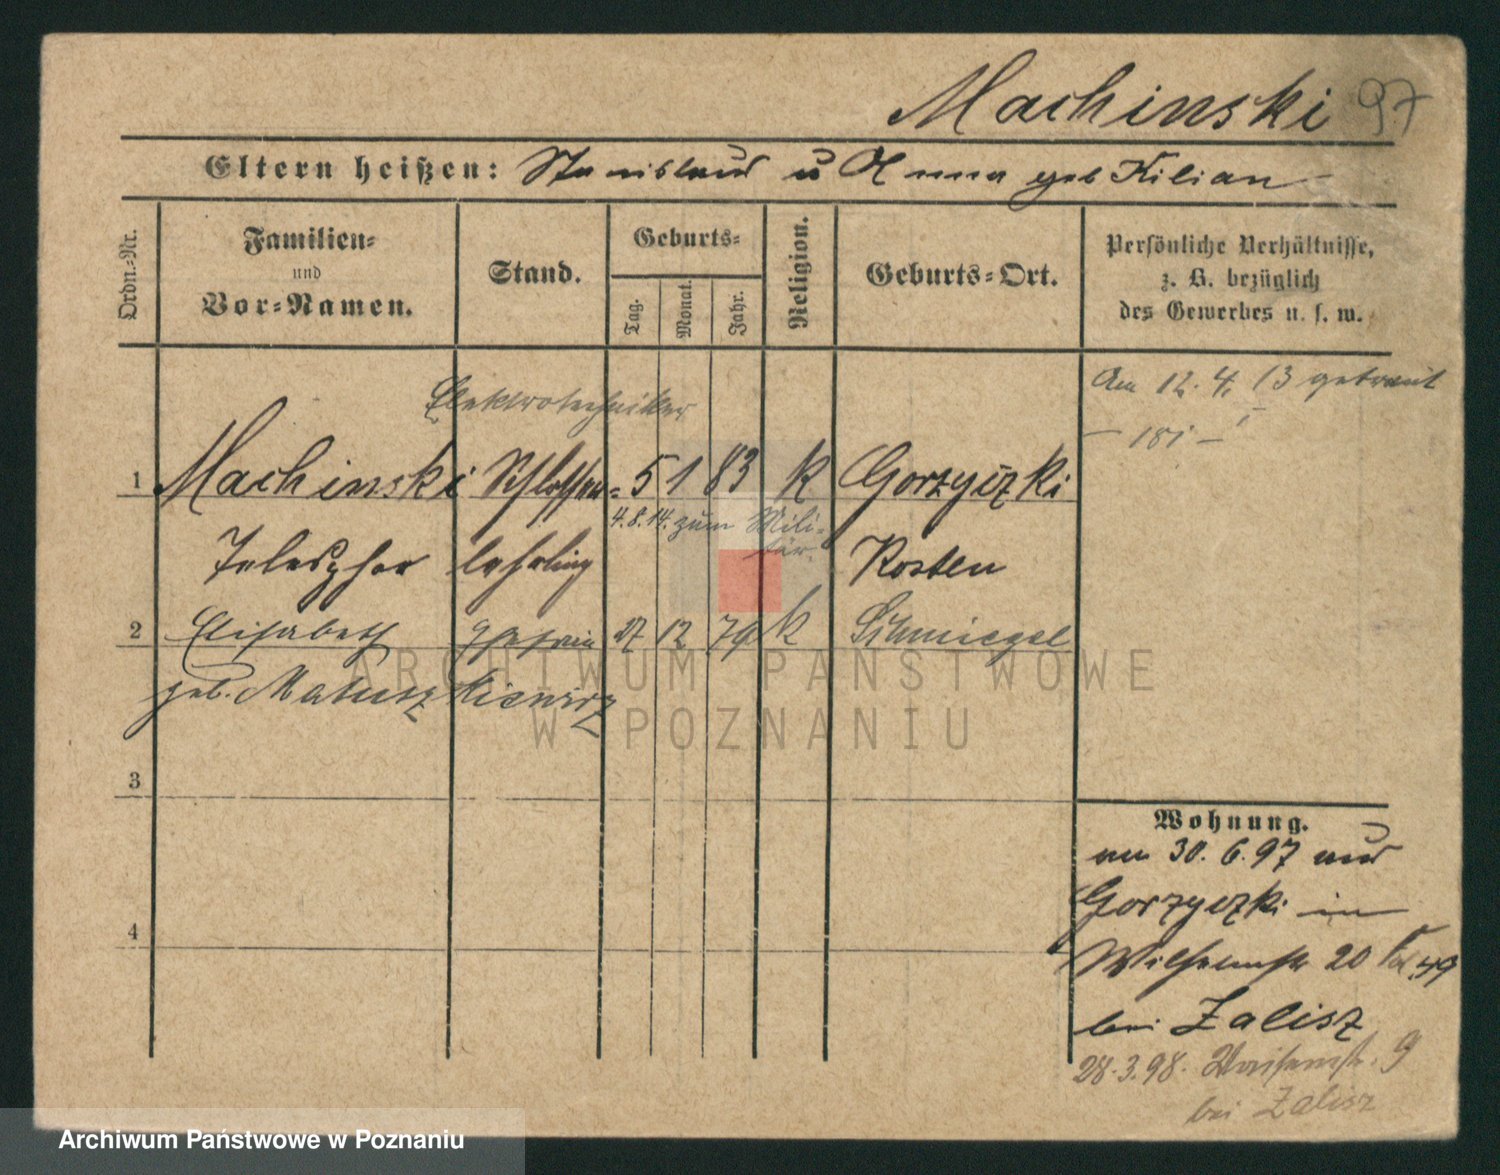 Machinski 97
Eltern heißen: Stanislaus u Anna geb Kilian
Ordn.-Nr.
Familien-
und
Vor-Namen.
Stand.
Geburts-
Tag.
Monat.
Jahr.
Religion.
Geburts-Ort.
Persönliche Verhältnisse,
z. B. bezüglich
des Gewerbes u. s. w.
Am 12. 4. 13 getraut
Elektrotechniker
1 Machinski Schlosser= 5 1 83 k Gorzyczki
4.8.14. zum Mili-
tär.
Telesphor lehrling Kosten
2 Elisabeth Ehefrau 27 12 79 k Schmiegel
geb. Matuszkiewicz
3
4
Wohnung.
am 30. 6. 97 aus
Gorzyczki in
Wilhelmstr 20
bei Zalisz
28.3.98. Waisenstr. 9
bei Zalisz
ARCHIWUM PAŃSTWOWE
W POZNANIU
Archiwum Państwowe w Poznaniu